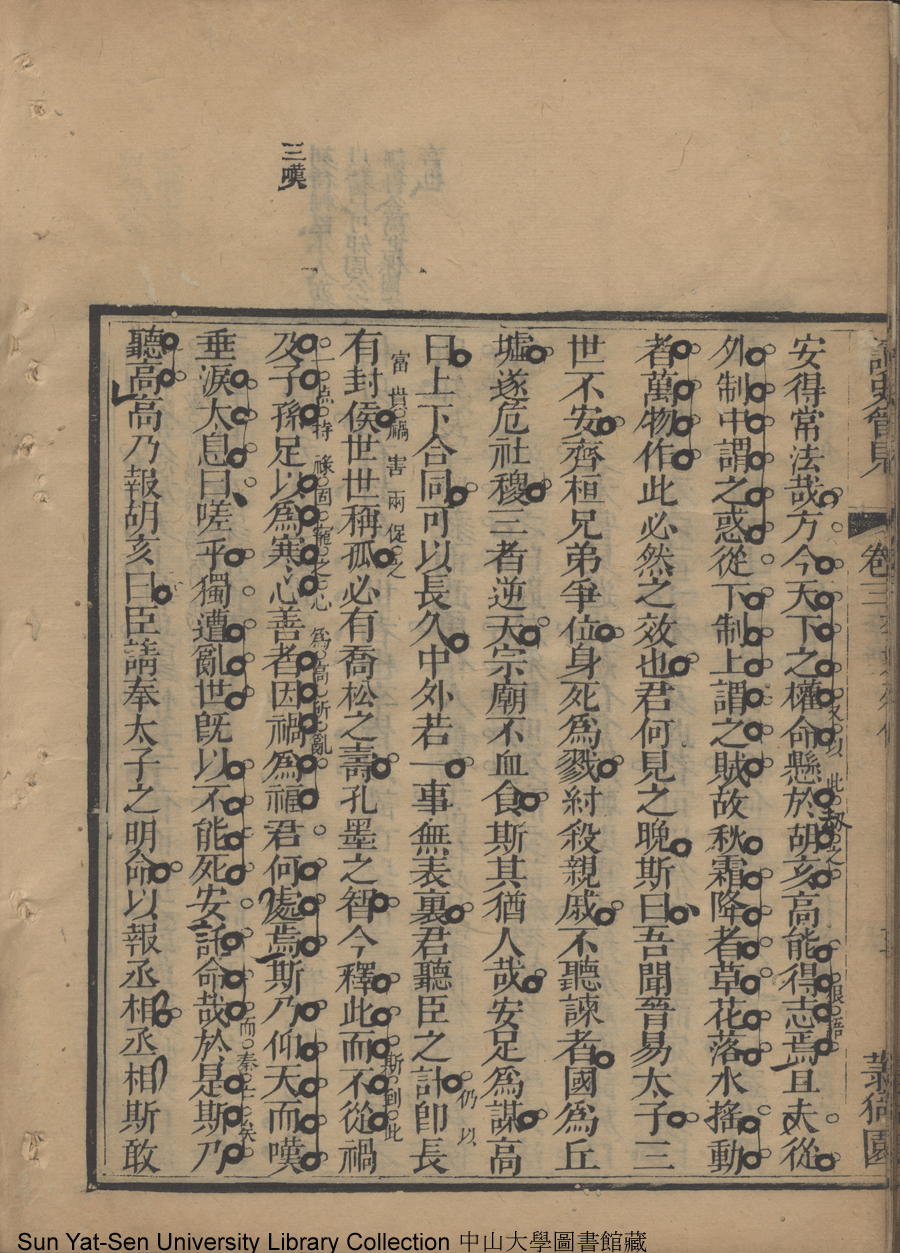 三嘆
安得常法哉方今天下之權命懸於胡亥高能得志焉且夫從
又以此劫之
狠語
外制中謂之惑從下制上謂之賊故秋霜降者草花落水搖動
者萬物作此必然之效也君何見之晚斯曰吾聞晉易太子三
世不安齊桓兄弟爭位身死爲戮紂殺親戚不聽諫者國爲丘
墟遂危社稷三者逆天宗廟不血食斯其猶人哉安足爲謀高
曰上下合同可以長久中外若一事無表裏君聽臣之計卽長
仍以
富貴禍害兩促之
有封侯世世稱孤必有喬松之壽孔墨之智今釋此而不從禍
斯到此
一点持祿固寵之心爲高所亂
及子孫足以爲寒心善者因禍爲福君何處焉斯乃仰天而嘆
垂淚太息曰嗟乎獨遭亂世旣以不能死安託命哉於是斯乃
而秦亡矣
聽高高乃報胡亥曰臣請奉太子之明命以報丞相丞相斯敢
讀史管見
卷三
叢倚園
Sun Yat-Sen University Library Collection 中山大學圖書館藏